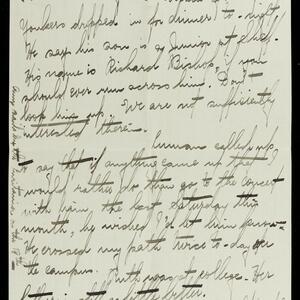 Yonkers dropped in for dinner to-night.
He says his son is a Junior at
His name is Richard Bishop, if you
should ever run across him. Don't
look him up. We are not sufficiently
interested therein.
Inman called up
to say that if anything came up that I
would rather do than go to the Concert
with him the last Saturday this
month, he wished I'd let him know.
He crossed my path twice to-day on
the campus. Ruth was at college. Her